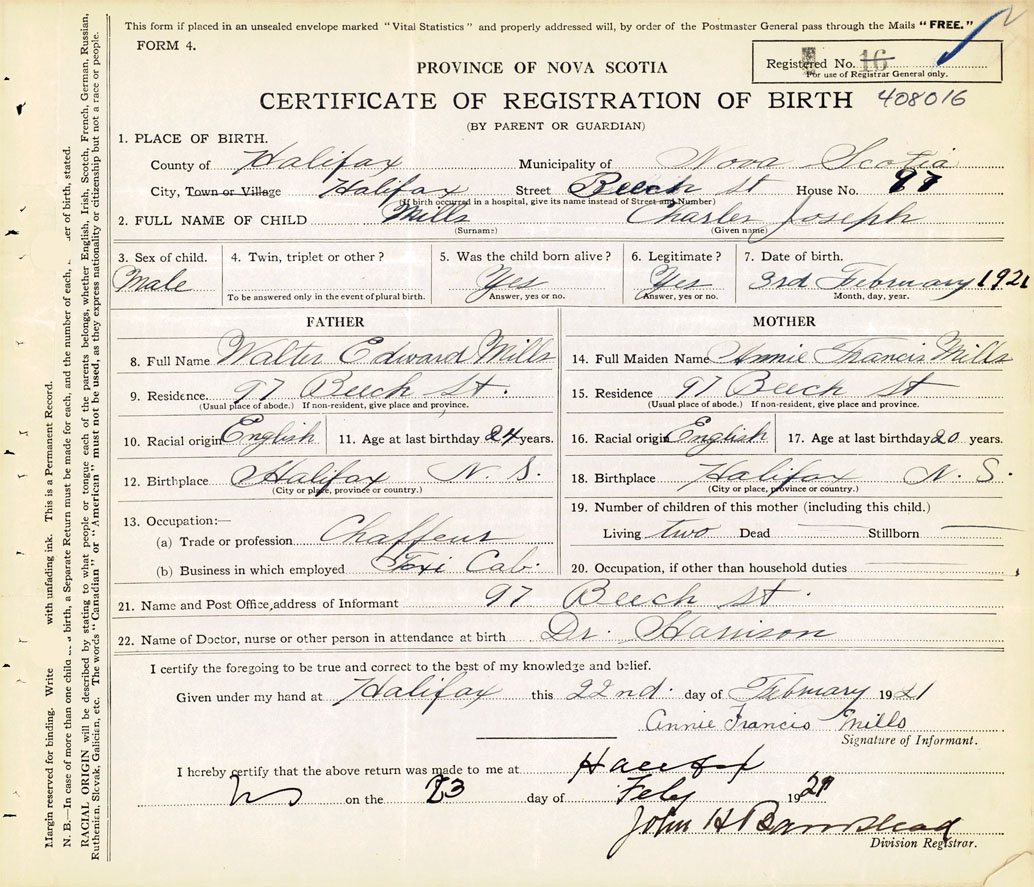 This form if placed in an unsealed envelope marked "Vital Statistics" and properly addressed will, by order of the Postmaster General pass through the Mails "FREE."
FORM 4.
Registered No. 16
For use of Registrar General only.
PROVINCE OF NOVA SCOTIA
CERTIFICATE OF REGISTRATION OF BIRTH 408016
(BY PARENT OR GUARDIAN)
1. PLACE OF BIRTH.
County of Halifax Municipality of Nova Scotia
City, Town or Village Halifax Street Beech St House No. 97
(If birth occurred in a hospital, give its name instead of Street and Number)
2. FULL NAME OF CHILD Mills Charles Joseph
(Surname) (Given name)
3. Sex of child. 4. Twin, triplet or other? 5. Was the child born alive? 6. Legitimate? 7. Date of birth.
Male Yes Yes 3rd February 1921
To be answered only in the event of plural birth. Answer, yes or no. Answer, yes or no. Month, day, year.
FATHER
8. Full Name Walter Edward Mills
9. Residence. 97 Beech St.
(Usual place of abode.) If non-resident, give place and province.
10. Racial origin English 11. Age at last birthday 24 years.
12. Birthplace Halifax N. S.
(City or place, province or country.)
13. Occupation:—
(a) Trade or profession Chaffeur
(b) Business in which employed Taxi Cab.
MOTHER
14. Full Maiden Name Annie Francis Mills
15. Residence 97 Beech St
(Usual place of abode.) If non-resident, give place and province.
16. Racial origin English 17. Age at last birthday 20 years.
18. Birthplace Halifax N. S.
(City or place, province or country.)
19. Number of children of this mother (including this child.)
Living two Dead Stillborn
20. Occupation, if other than household duties
21. Name and Post Office, address of Informant 97 Beech St.
22. Name of Doctor, nurse or other person in attendance at birth Dr. Harrison
I certify the foregoing to be true and correct to the best of my knowledge and belief.
Given under my hand at Halifax this 22nd. day of February 1921
Annie Francis Mills
Signature of Informant.
I hereby certify that the above return was made to me at Halifax
NS on the 23 day of Feby 1921
John H Barnstead
Division Registrar.
Margin reserved for binding. Write with unfading ink. This is a Permanent Record.
N. B.—In case of more than one child birth, a Separate Return must be made for each, and the number of each, er of birth, stated.
RACIAL ORIGIN will be described by stating to what people or tongue each of the parents belongs, whether English, Irish, Scotch, French, German, Russian,
Ruthenian, Slovak, Galician, etc. The words "Canadian" or "American" must not be used, as they express nationality or citizenship but not a race or people.